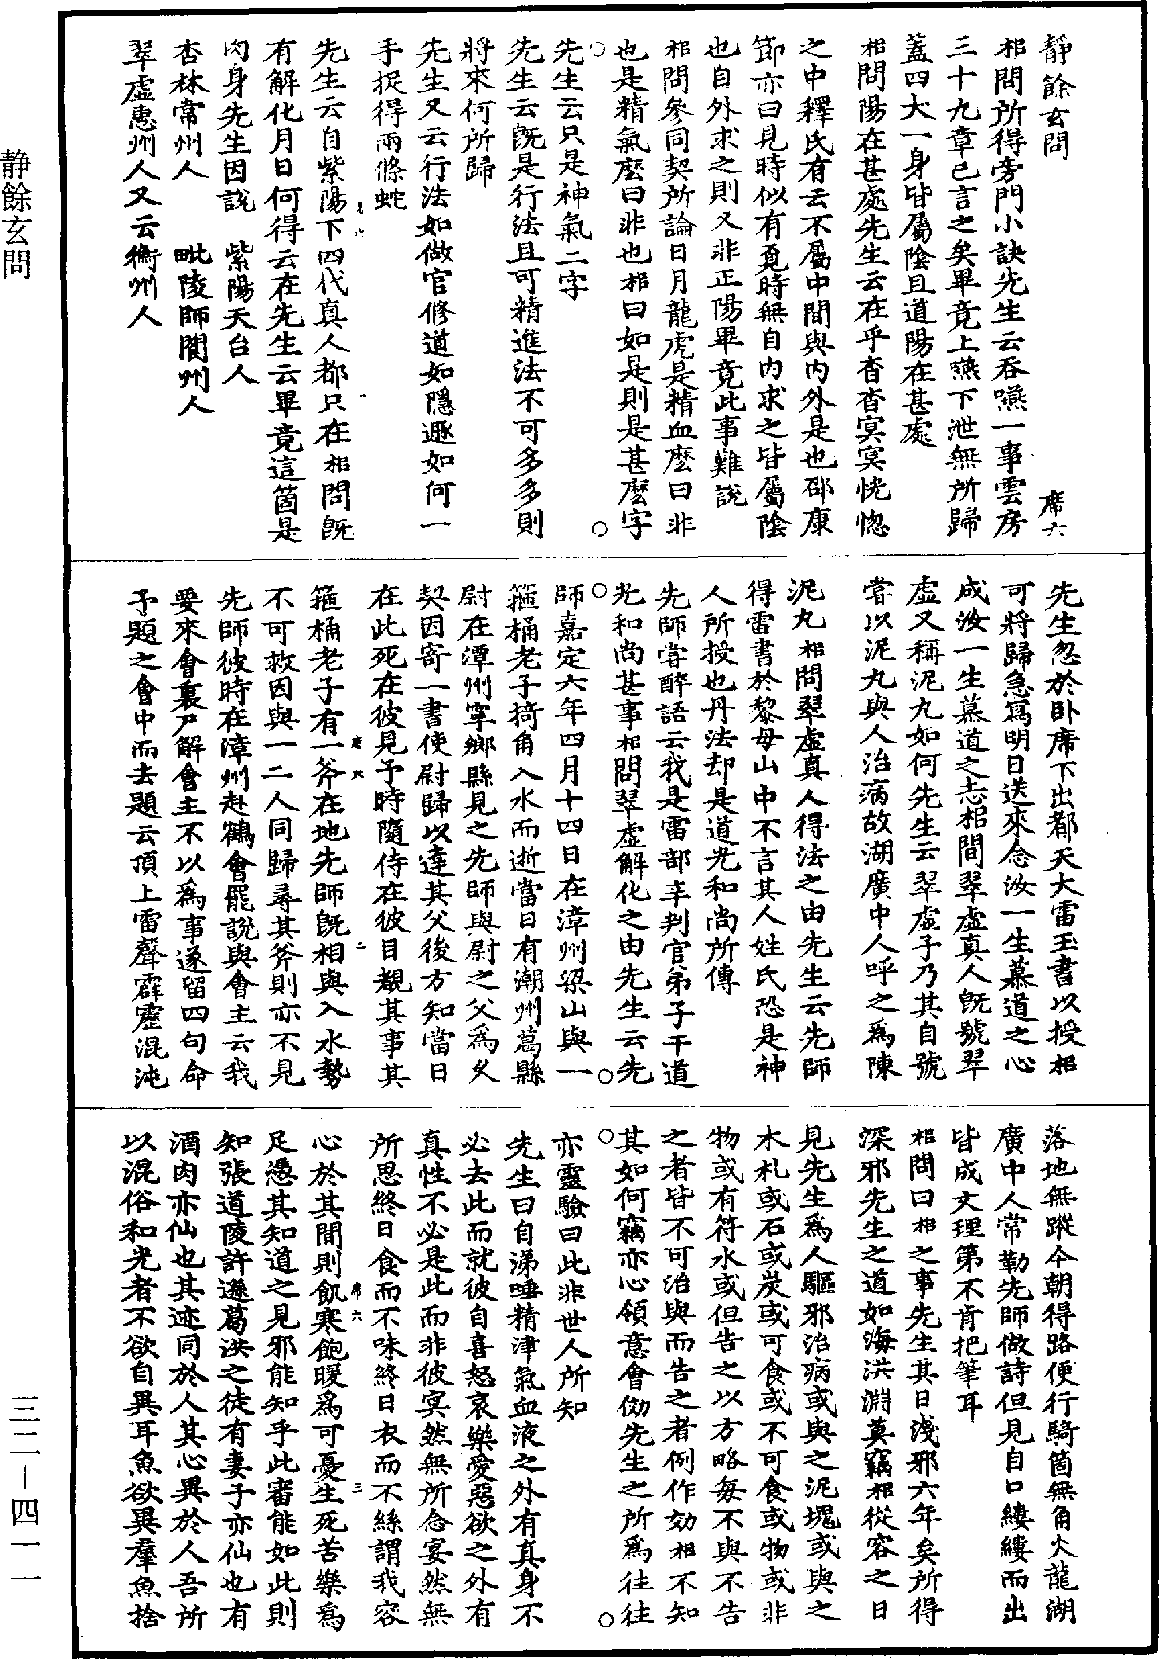 靜餘玄問
席六
相問所得旁門小訣先生云吞嚥一事雲房
三十九章已言之矣畢竟上嚥下泄無所歸
蓋四大一身皆屬陰且道陽在甚處
相問陽在甚處先生云在乎杳杳冥冥恍惚
之中釋氏有云不屬中間與內外是也邵康
節亦曰見時似有覓時無自內求之皆屬陰
也自外求之則又非正陽畢竟此事難說
相問參同契所論日月龍虎是精血麼曰非
也是精氣麼曰非也相曰如是則是甚麼字
先生云只是神氣二字
先生云既是行法且可精進法不可多多則
將來何所歸
先生又云行法如做官修道如隱遯如何一
手捉得兩條蛇
先生云自紫陽下四代真人都只在相問既
有解化月日何得云在先生云畢竟這箇是
肉身先生因說　紫陽天台人
杏林常州人　毗陵師閬州人
翠虛惠州人又云衡州人
先生忽於卧席下出都天大雷玉書以授相
可將歸急寫明日送來念汝一生慕道之心
成汝一生慕道之志相問翠虛真人既號翠
虛又稱泥九如何先生云翠虛子乃其自號
嘗以泥丸與人治病故湖廣中人呼之為陳
泥丸相問翠虛真人得法之由先生云先師
得雷書於黎母山中不言其人姓氏恐是神
人所授也丹法却是道光和尚所傳
先師嘗醉語云我是雷部辛判官弟子干道
光和尚甚事相問翠虛解化之由先生云先
師嘉定六年四月十四日在漳州梁山與一
箍桶老子掎角入水而逝當日有潮州葛縣
尉在潭州寧鄉縣見之先師與尉之父為久
契因寄一書使尉歸以達其父後方知當日
在此死在彼見予時隨侍在彼目覩其事其
箍桶老子有一斧在地先師既相與入水勢
不可救因與一二人同歸尋其斧則亦不見
先師彼時在漳州赴鶴會罷說與會主云我
要來會裏尸解會主不以為事遂留四句命
予題之會中而去題云頂上雷聲霹靂混沌
落地無蹤今朝得路便行騎箇無角火龍湖
廣中人常勒先師做詩但見自口縷縷而出
皆成文理第不肯把筆耳
相問曰相之事先生其日淺邪六年矣所得
深邪先生之道如海洪淵奠竊相從容之日
見先生為人驅邪治病或與之泥塊或與之
木札或石或炭或可食或不可食或物或非
物或有符水或但告之以方略每不與不告
之者皆不可治與而告之者例作効相不知
其如何竊亦心領意會傚先生之所為往往
亦靈驗曰此非世人所知
先生曰自涕唾精津氣血液之外有真身不
必去此而就彼自喜怒哀樂愛惡欲之外有
真性不必是此而非彼冥然無所念宴然無
所思終日食而不味終日衣而不絲謂我容
心於其間則飢寒飽暖為可憂生死苦樂為
足憑其知道之見邪能知乎此審能如此則
知張道陵許遜葛洪之徒有妻子亦仙也有
酒肉亦仙也其迹同於人其心異於人吾所
以混俗和光者不欲自異耳魚欲異羣魚捨
静餘玄問
三二－四一一